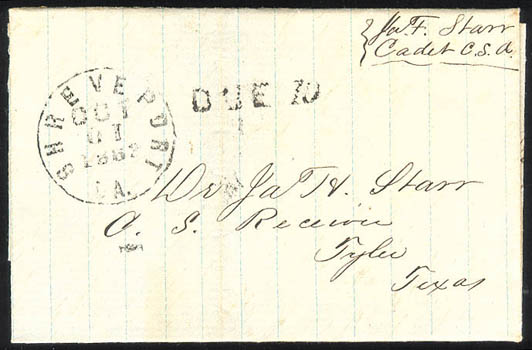 Jas. F. Starr
Cadet C.S.A.
DUE 10
SHREVEPORT
OCT
LA.
Dr Jas H. Starr
C. S. Receiver
Tyler
Texas